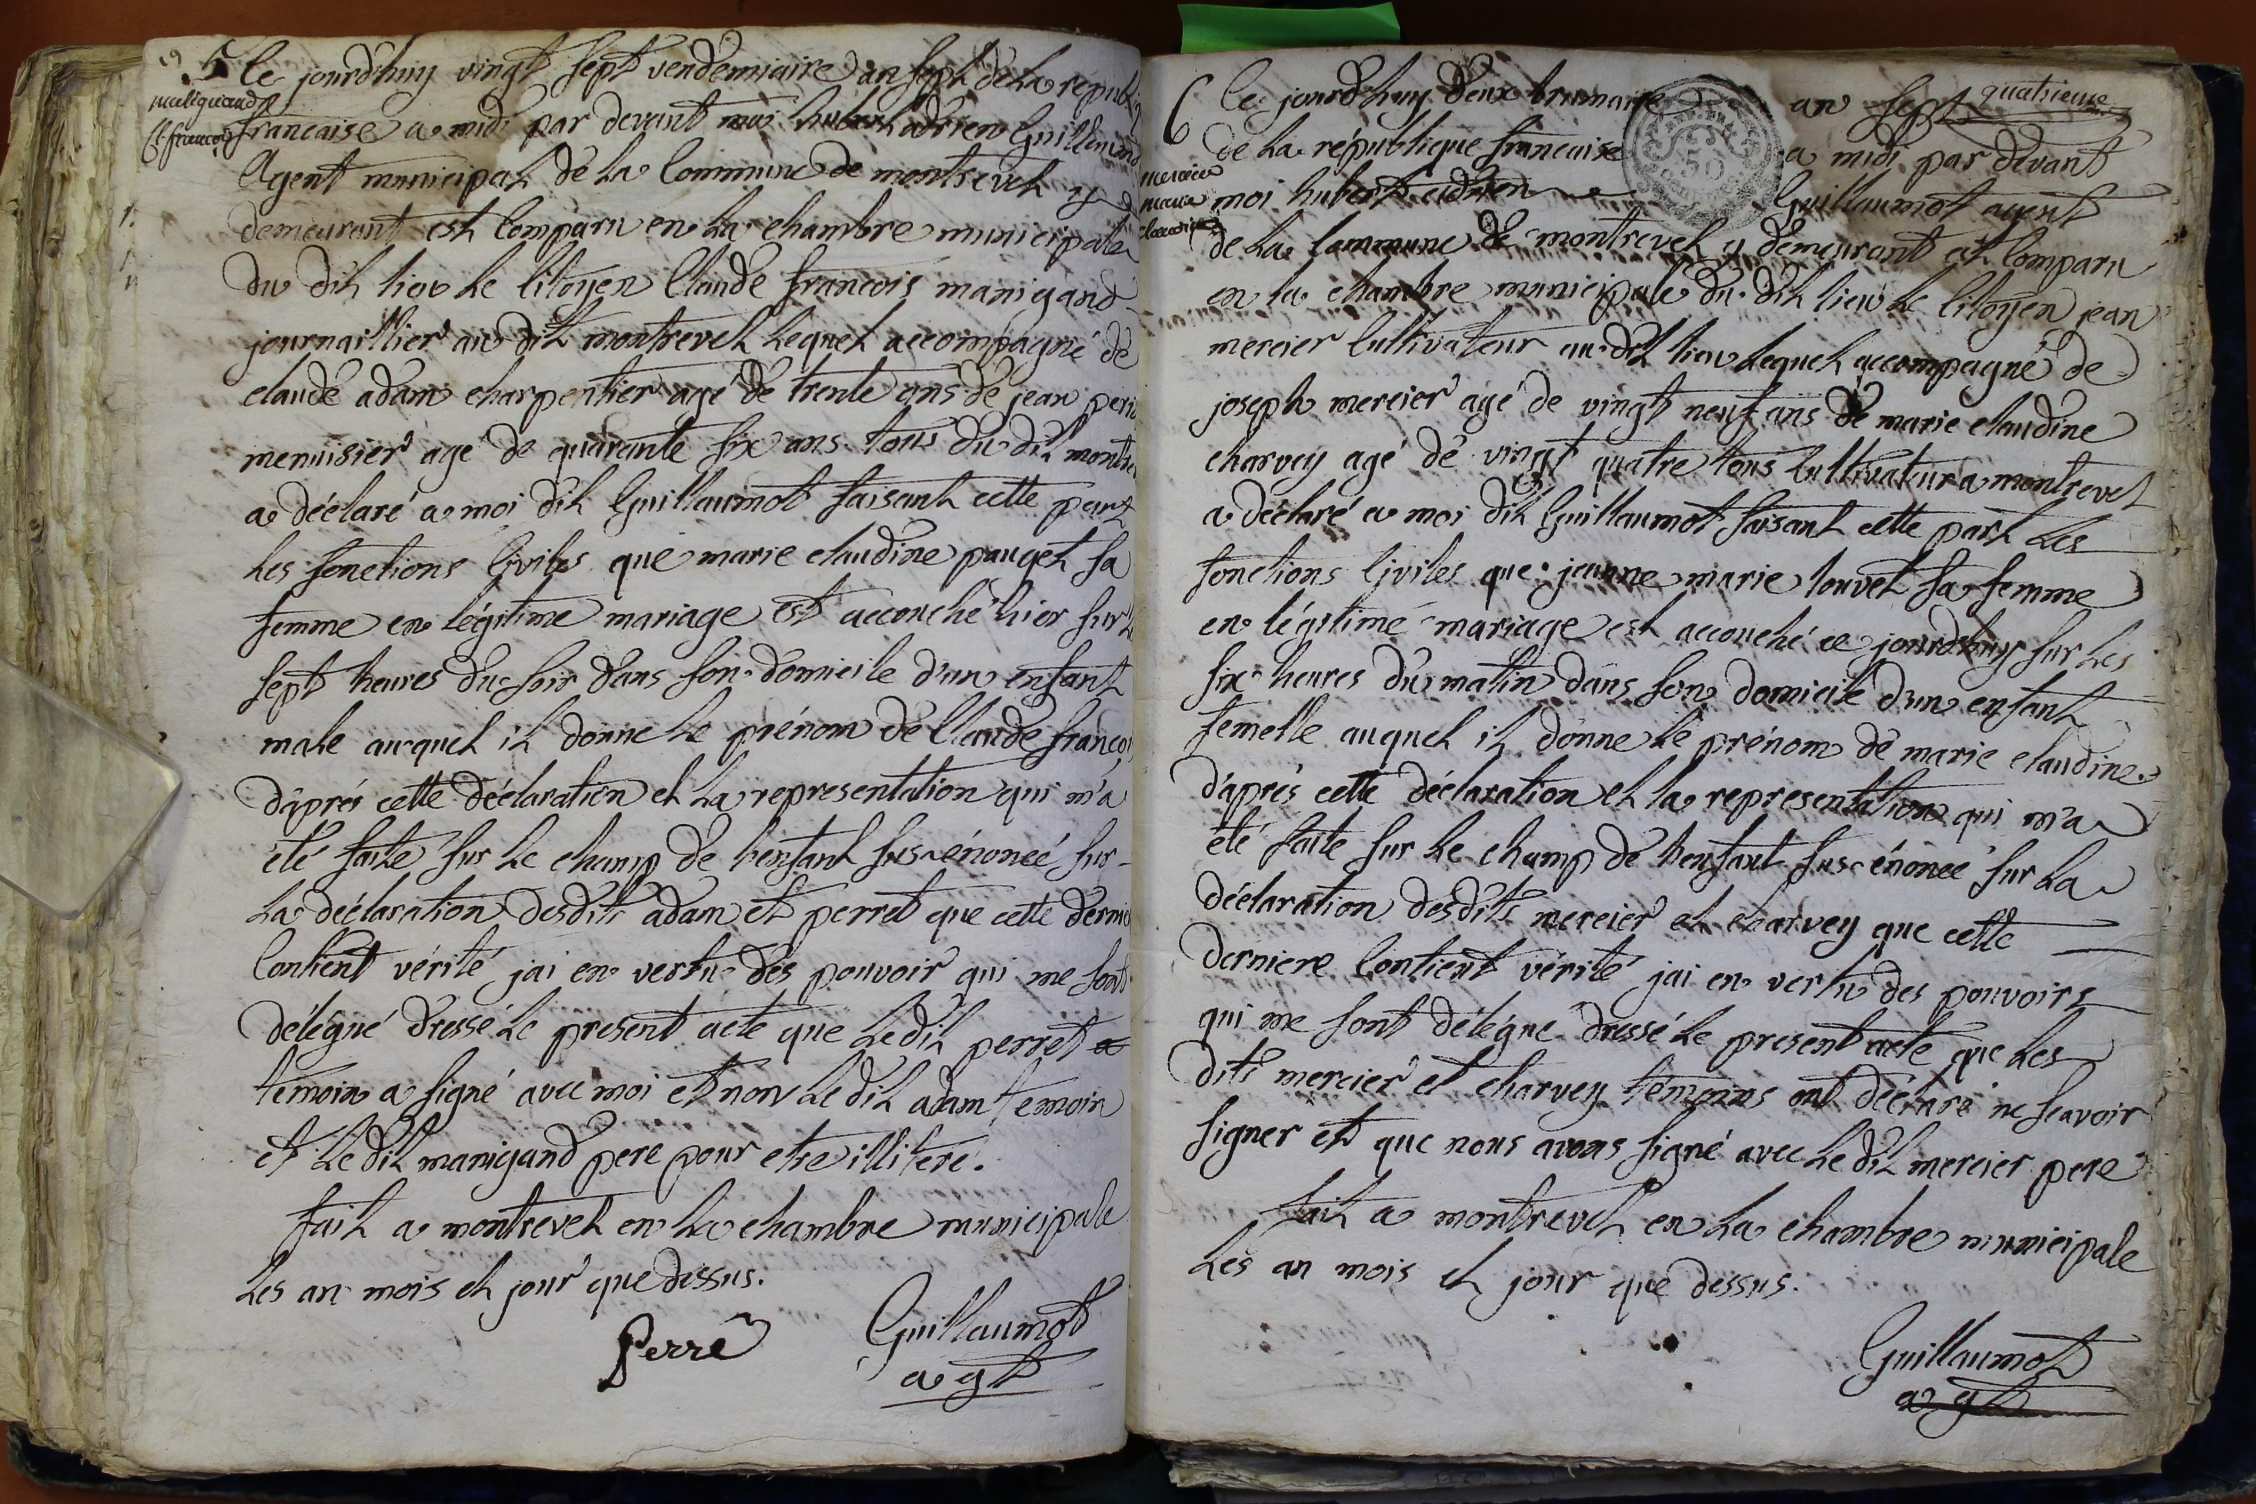 5 Ce jourd'huy vingt sept vendemiaire an sept de la republi
maligand
Cl. francois
francaise a midi par devant moi hubert adrien Guillaumo
Agent municipal de la Commune de montrevel y
demeurant est Comparu en la chambre municipale
du dit lieu le Citoyen Claude francois manigand
journaillier au dit montrevel lequel accompagné de
claude adam charpentier agé de trente ans de jean per
menuisier agé de quarante six ans tous du dit montre
a déclaré a moi dit Guillaumot faisant cette part
les fonctions Civiles que marie claudine pauget sa
femme en légitime mariage est accouché hier sur le
sept heures du soir dans son domicile d'un enfant
male auquel il donne le prénom de Claude francoi
d'aprés cette déclaration et la representation qui m'a
été faite sur le champ de l'enfant sus-énoncé sur-
la déclaration desdits adam et perret que cette dernie
Contient vérité jai en vertu des pouvoir qui me sont
delégué dressé le present acte que ledit perret
témoin a signé avec moi et non le dit adam temoin
et le dit manigand pere pour etre illiteré.
fait a montrevel en la chambre municipale
les an mois et jour que dessus.
Perré
Guillaumot
agt
quatrieme
6 Ce jourd'huy deux brumaire an sept
de la république francaise a midi par devant
mercier
marie
claudine
moi hubert adrien Guillaumot agent
de la Commune de montrevel y demeurant est Comparu
en la chambre municipale du dit lieu le Citoyen jean
mercier Cultivateur au dit lieu lequel accompagné de
joseph mercier agé de vingt neuf ans de marie claudine
charvey agé de vingt quatre tous Cultivateur a montrevel
a déclaré a moi dit Guillaumot faisant cette part les
fonctions Civiles que jeanne marie louvet sa femme
en légitime mariage est accouché ce jourd'huy sur les
six heures du matin dans son domicile d'un enfant
femelle auquel il donne le prénom de marie claudine.
d'aprés cette déclaration et la representation qui m'a
été faite sur le champ de l'enfant sus-énoncé sur la
déclaration desdits mercier et charvey que cette
derniere Contient vérité jai en vertu des pouvoirs
qui me sont délégué dressé le present acte que les
dits mercier et charvey témoins ont déclaré ne scavoir
signer et que nous avons signé avec le dit mercier pere
fait a montrevel en la chambre municipale
les an mois et jour que dessus.
Guillaumot
agt